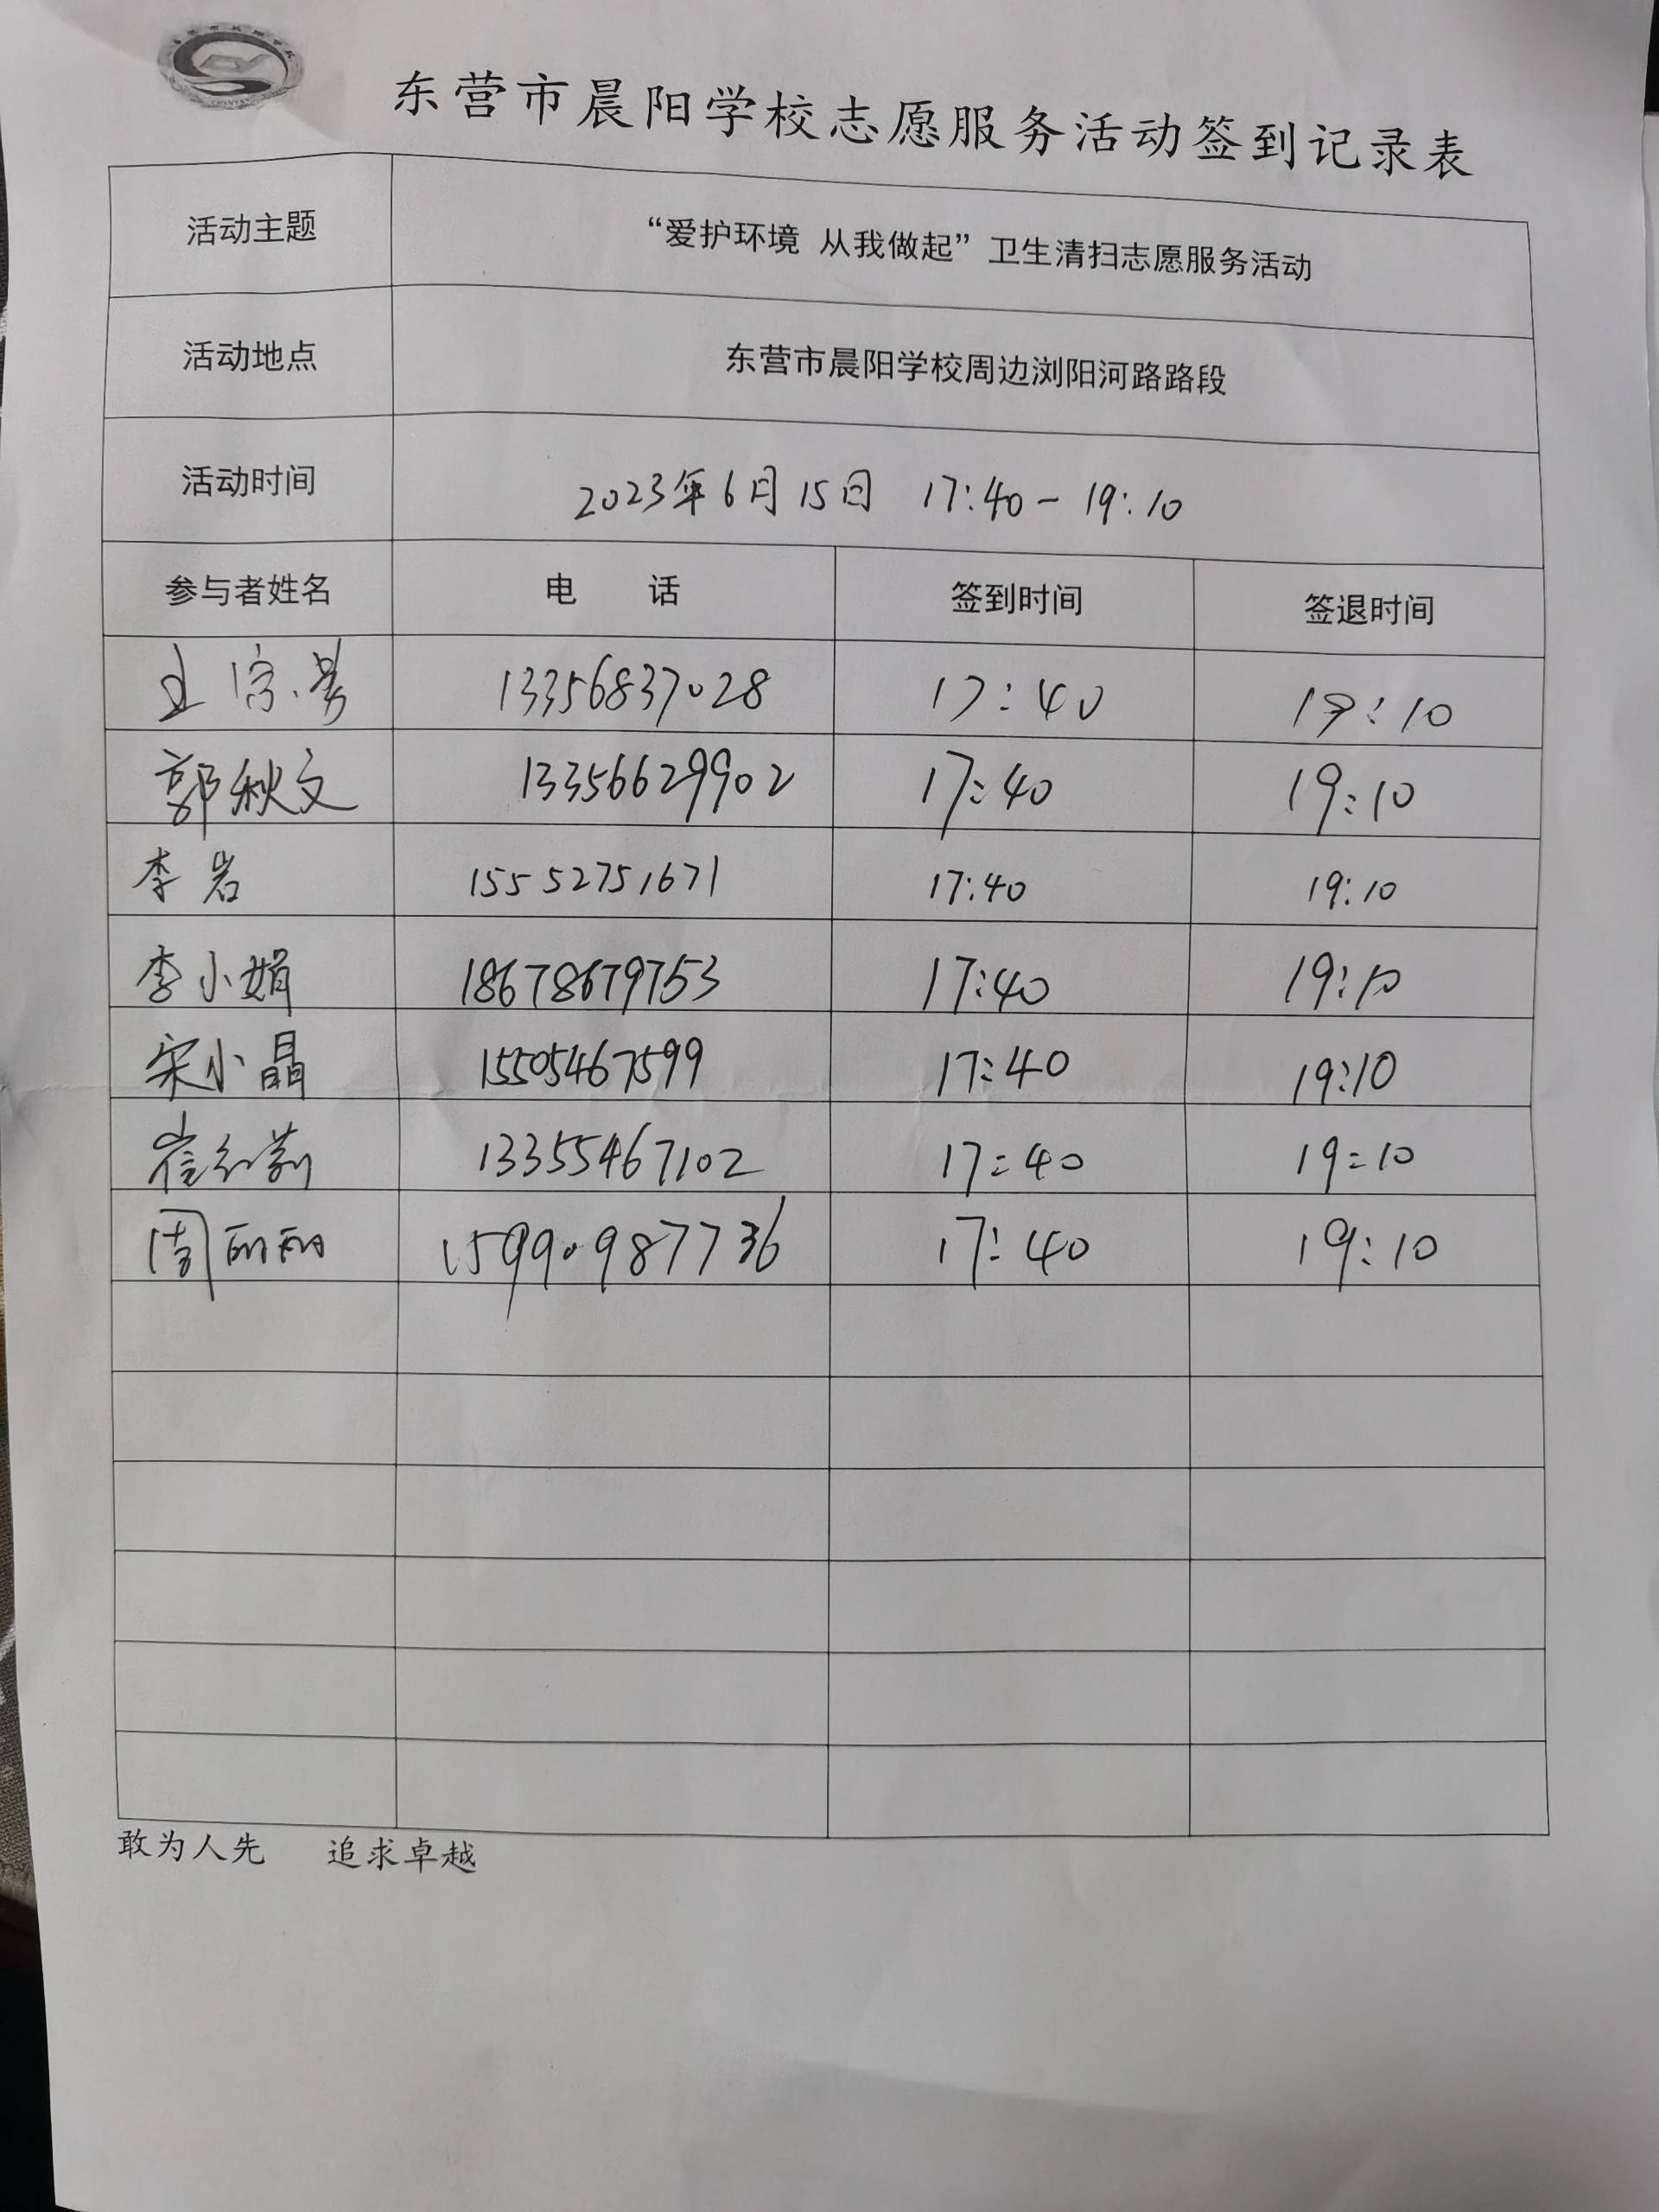 东营市晨阳学校志愿服务活动签到记录表
活动主题 “爱护环境 从我做起”卫生清扫志愿服务活动
活动地点 东营市晨阳学校周边浏阳河路路段
活动时间 2023年6月15日 17:40-19:10
参与者姓名 电 话 签到时间 签退时间
13356837028 17:40 19:10
郭秋文 13356629902 17:40 19:10
李岩 15552751671 17:40 19:10
李小娟 18678679753 17:40 19:10
宋小晶 15505467599 17:40 19:10
崔红莉 13355467102 17:40 19:10
周丽丽 15990987736 17:40 19:10
敢为人先 追求卓越